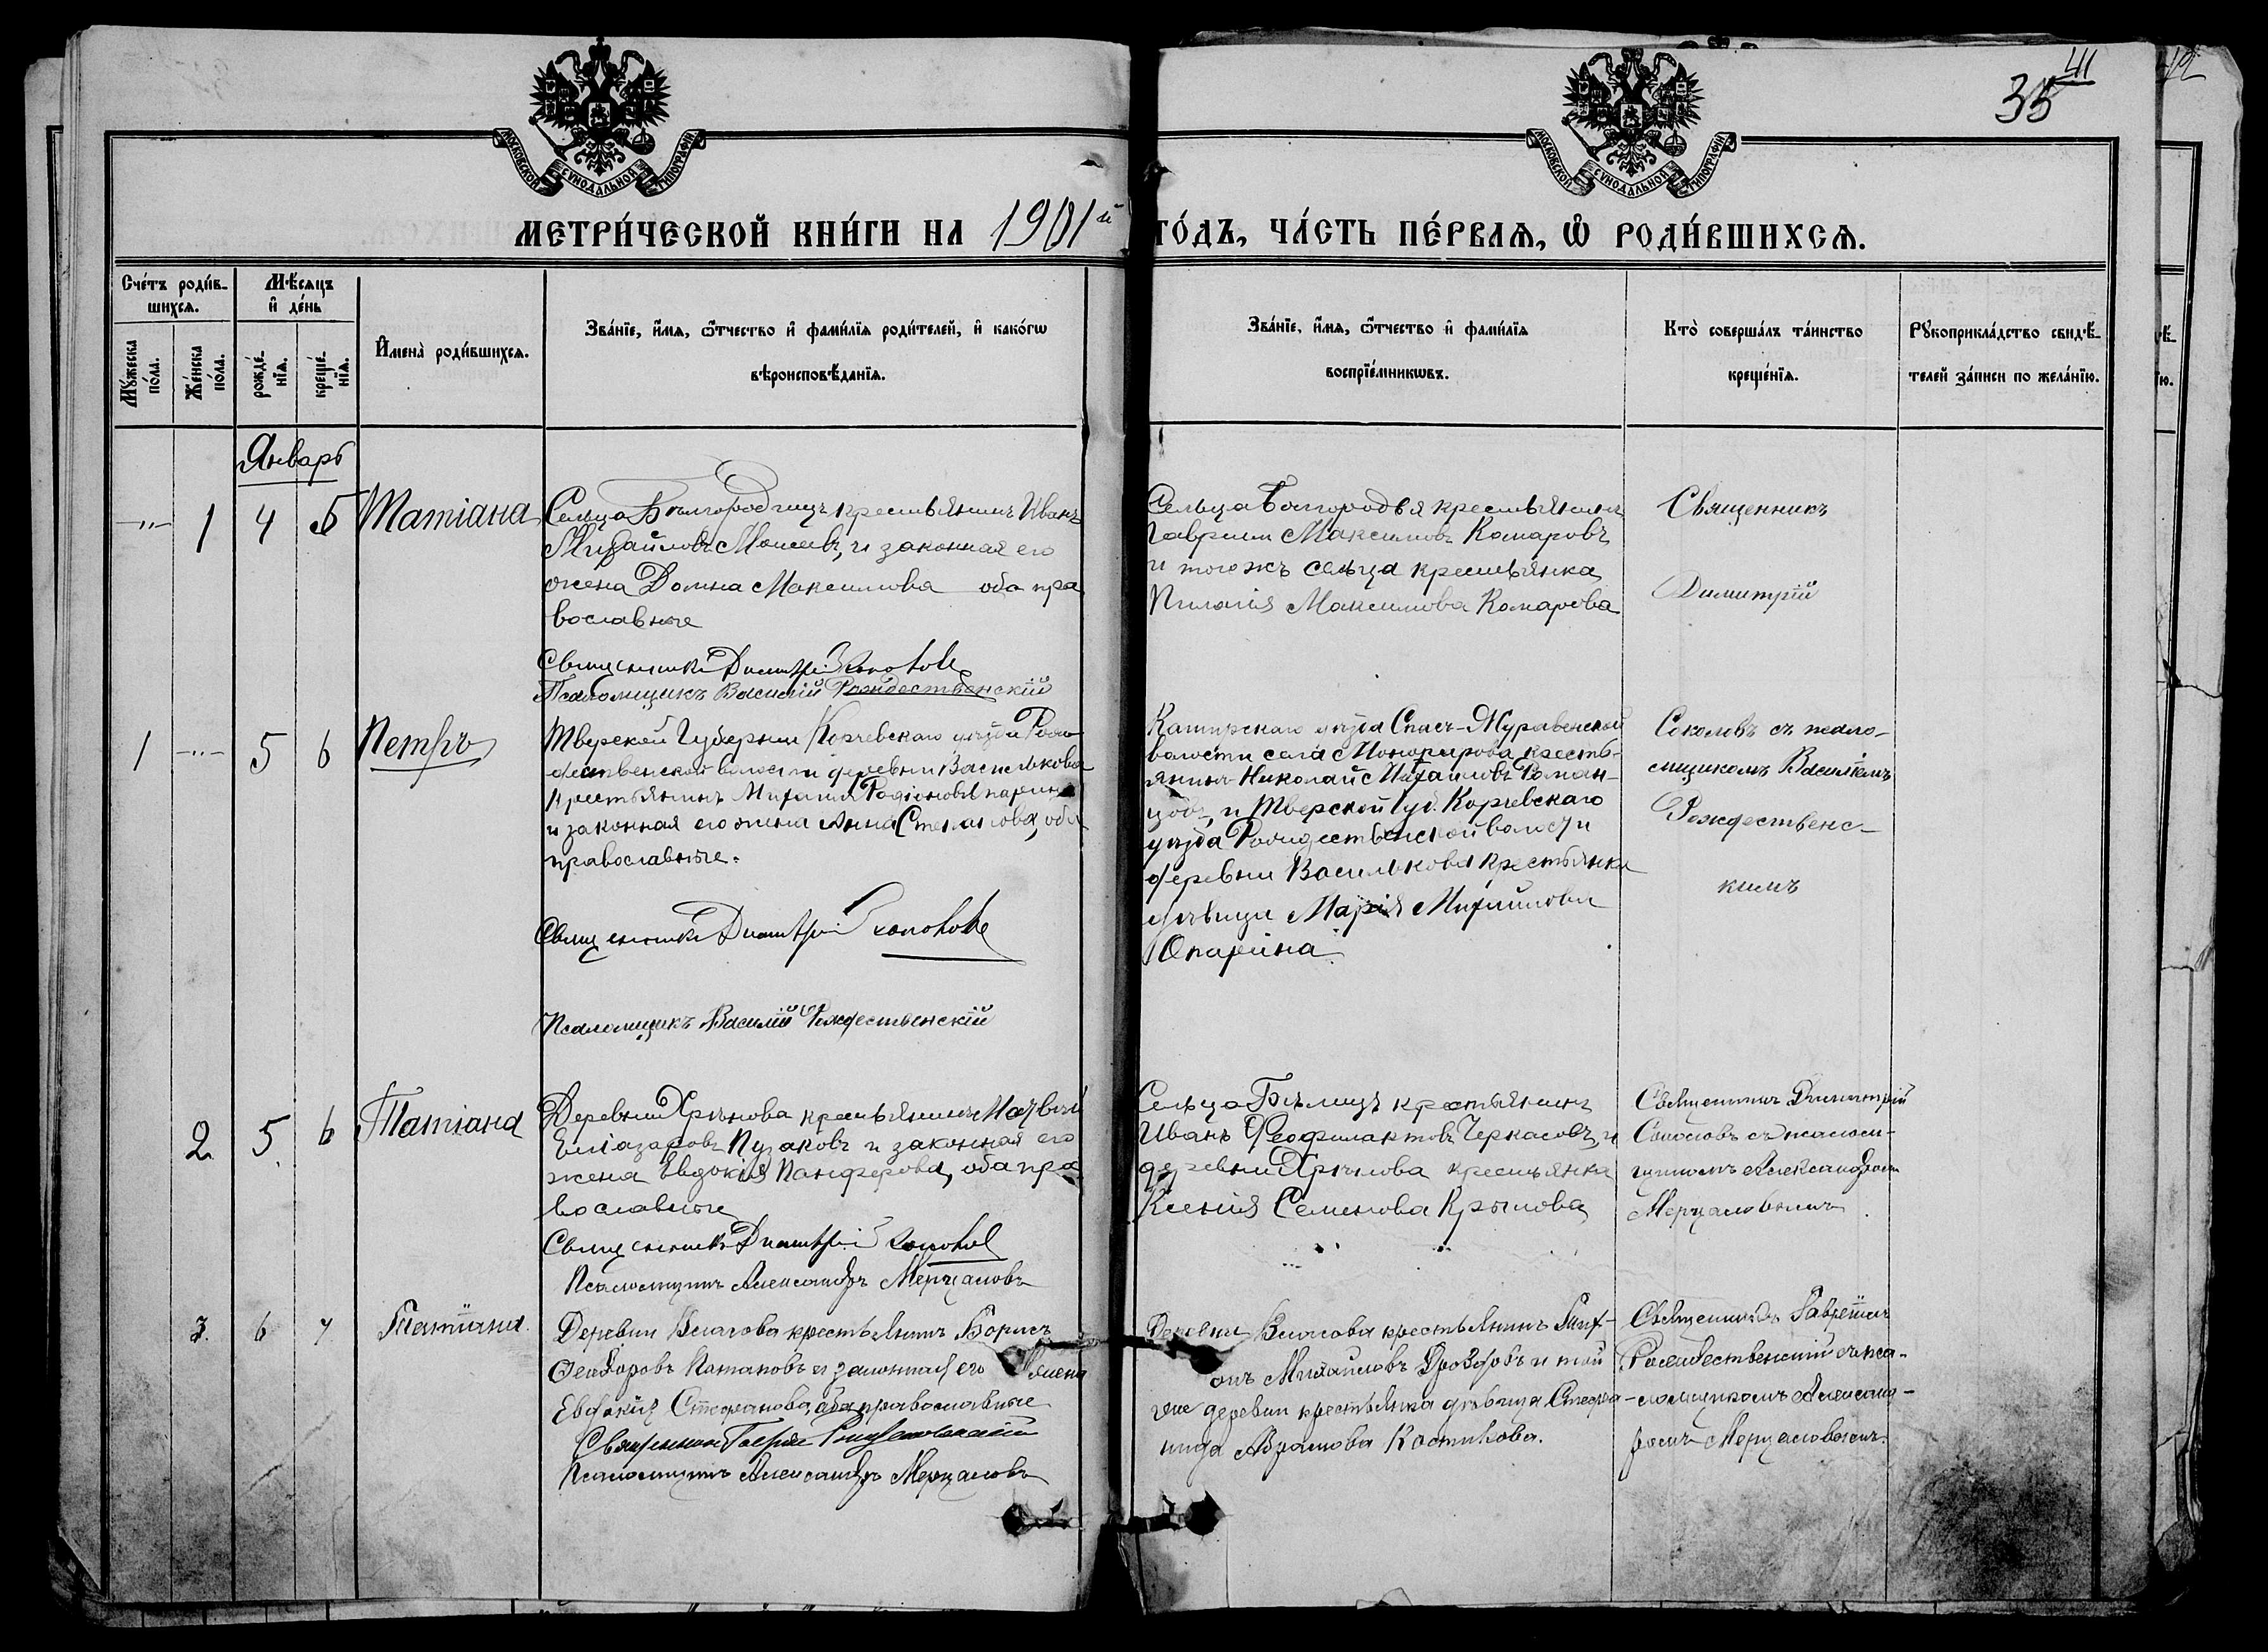 41
35
42
МОСКОВСКОЙ СУНОДАЛЬНОЙ ТИПОГРАФІИ
МОСКОВСКОЙ СУНОДАЛЬНОЙ ТИПОГРАФІИ
МЕТРИ́ЧЕСКОЙ КНИ́ГИ НА 1901й ГО́ДЪ, ЧА́СТЬ ПЕ́РВАѦ, Ѡ РОДИ́ВШИХСѦ.
Сче́тъ роди́в-
шихсѧ.
Мѣ́сѧцъ
и҆ де́нь
Мꙋ́жеска
по́ла.
Же́нска
по́ла.
рожде́-
нїѧ.
креще́-
нїѧ.
И҆мена̀ роди́вшихсѧ.
Зва́нїе, и҆́мѧ, ѻ҆́тчество и҆ фами́лїѧ роди́телей, и҆ како́гѡ
вѣроисповѣ́данїѧ.
Зва́нїе, и҆́мѧ, ѻ҆́тчество и҆ фами́лїѧ
воспрїе́мникѡвъ.
Кто̀ соверша́лъ та́инство
креще́нїѧ.
Рꙋкоприкла́дство свидѣ́-
телей за́писи по жела́нїю.
Январь
-„- 1 4 5 Татіана
Сельца крестьянинъ Иванъ
Михайловъ и законная его
жена Домна Максимова оба пра
вославные
Священникъ Димитрій Соколовъ
Псаломщикъ Василій Рождественскій
Сельца крестьянинъ
Гавріилъ Максимовъ Комаровъ
и тогожъ сельца крестьянка
Пелагія Максимова Комарова
Священникъ
Димитрій
1 -„- 5 6 Петръ
Тверской Губерніи Корчевскаго уѣзда Рож-
дественской волости деревни Василькова
крестьянинъ Михаилъ Родіоновъ Опаринъ
и законная его жена Анна Степанова, оба
православные.
Священникъ Димитрій Соколовъ
Псаломщикъ Василій Рождественскій
Каширскаго уѣзда Спасъ-Журавенской
волости села крестъ-
янинъ Николай Михайловъ Роман-
цовъ, и Тверской Губ. Корчевскаго
уѣзда Рождественской волости
деревни Василькова крестьянка
дѣвица Марія Михайлова
Опарина.
Соколовъ съ псало-
мщикомъ Василіемъ
Рождественс-
кимъ
2. 5. 6 Татіана
Деревни Хрѣнова крестьянинъ Матвѣй
Еліазаровъ Пузаковъ и законная его
жена Евдокія Панферова, оба пра
вославные
Священникъ Димитрій Соколовъ
Псаломщикъ Александръ Мерцаловъ
Сельца Бѣлицъ крестьянинъ
Иванъ Феофилактовъ Черкасовъ, и
деревни Хрѣнова крестьянка
Ксенія Семенова Крылова
Священникъ Димитрій
Соколовъ съ псаломщ-
икомъ Александромъ
Мерцаловымъ
3. 6 7 Татіана.
Деревни Власова крестьянинъ Борисъ
Феодоровъ Потаповъ и законная его жена
Евдокія Стефанова, оба православные
Священникъ Гавріилъ Рождественскій
Псаломщикъ Александръ Мерцаловъ
Деревни Власова крестьянинъ
Михайловъ Дроздовъ и той
же деревни крестьянка дѣвица Стефа-
нида Абрамова
Священникъ Гавріилъ
Рождественскій съ пса-
ломщикомъ Алексан-
дромъ Мерцаловымъ.